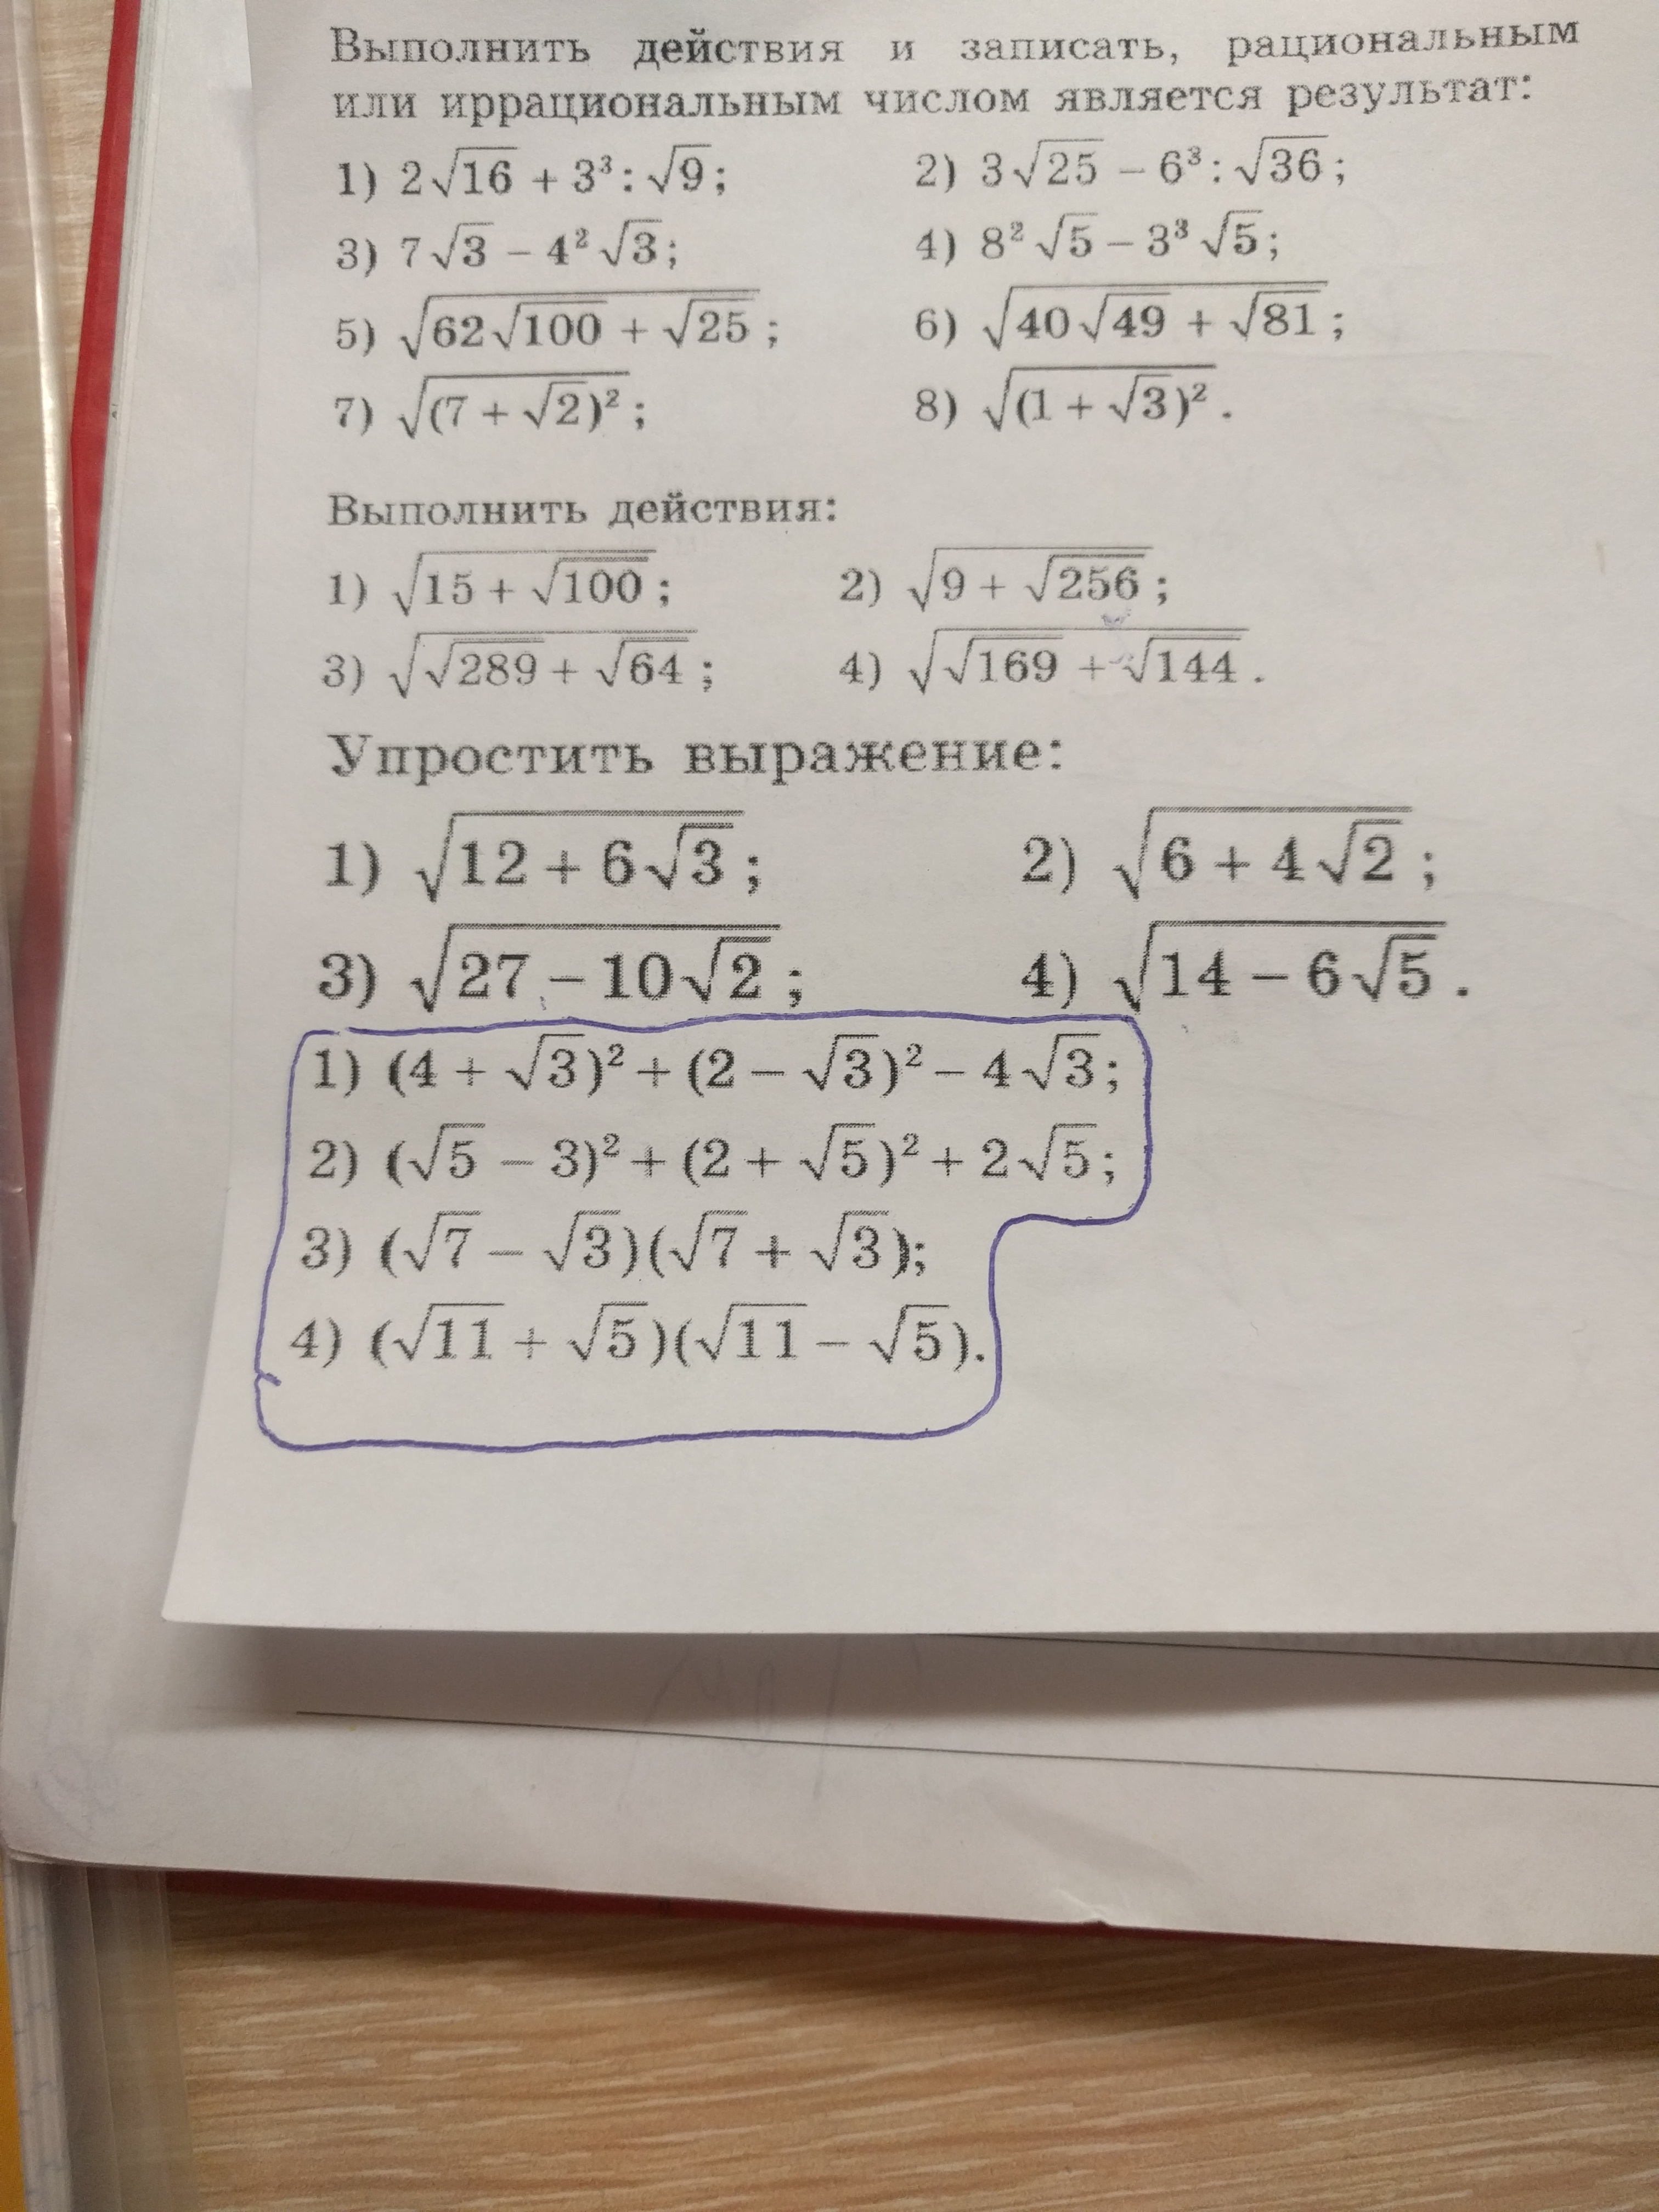 Выполнить действия и записать, рациональным
или иррациональным числом является результат:
1) 2√16 + 3³ : √9; 2) 3√25 − 6³ : √36;
3) 7√3 − 4²√3; 4) 8²√5 − 3³√5;
5) √(62√100 + √25); 6) √(40√49 + √81);
7) √((7 + √2)²); 8) √((1 + √3)²).
Выполнить действия:
1) √(15 + √100); 2) √(9 + √256);
3) √(√289 + √64); 4) √(√169 + √144).
Упростить выражение:
1) √(12 + 6√3); 2) √(6 + 4√2);
3) √(27 − 10√2); 4) √(14 − 6√5).
1) (4 + √3)² + (2 − √3)² − 4√3;
2) (√5 − 3)² + (2 + √5)² + 2√5;
3) (√7 − √3)(√7 + √3);
4) (√11 + √5)(√11 − √5).